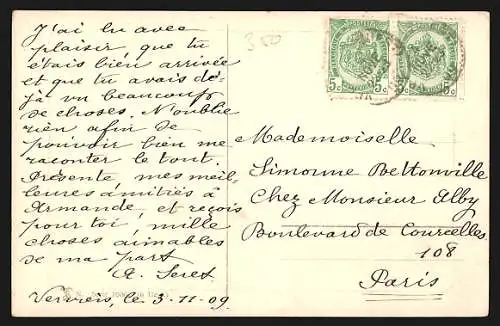 J'ai lu avec
plaisir, que tu
étais bien arrivée
et que tu avais dé-
jà vu beaucoup
de choses. N'oublie
rien afin de
pouvoir bien me
raconter le tout.
Présente mes meil-
leures amitiés à
Armande, et reçois
pour toi, mille
choses aimables
de ma part
A. Seret
Verviers, le 3-11-09
350
5c 5c 5c 5c
Mademoiselle
Simonne Bettonville
Chez Monsieur Alby
Boulevard de Courcelles
108
Paris